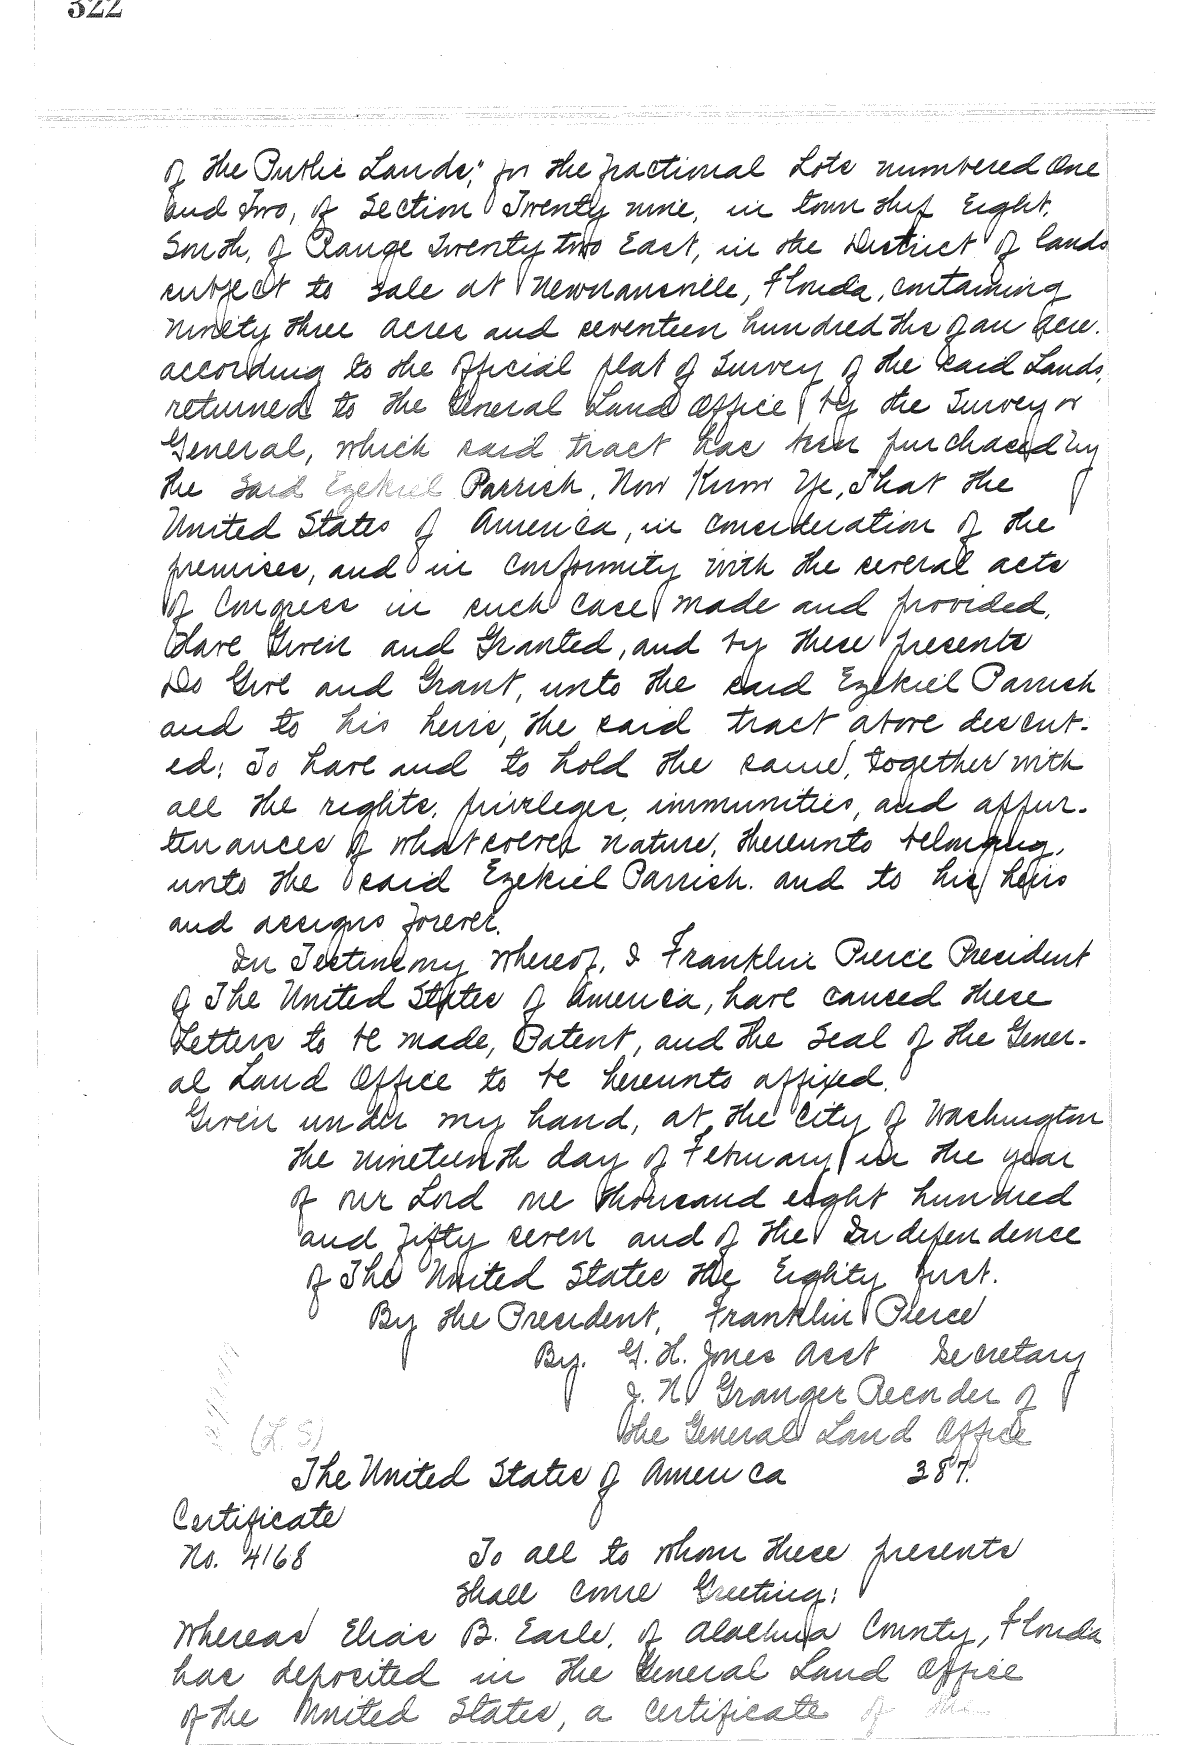 322
of the Public Lands," for the fractional Lots numbered One
and Two, of Section Twenty nine, in town ship Eight,
South, of Range Twenty two East, in the District of lands
subject to sale at Newnansville, Florida, containing
ninety three acres and seventeen hundred ths of an acre.
according to the official plat of Survey of the said Lands,
returned to the General Land Office by the Survey or
General, which said tract has been purchased by
the said Ezekiel Parrish, Now Know Ye, That the
United States of America, in consideration of the
premises, and in conformity with the several acts
of Congress in such case made and provided,
Have Given and Granted, and by these presents
Do Give and Grant, unto the said Ezekiel Parrish
and to his heirs, the said tract above describ-
ed: To have and to hold the same, together with
all the rights, privileges, immunities, and appur-
tenances of whatsoever nature, thereunto belonging,
unto the said Ezekiel Parrish. and to his heirs
and assigns forever.
In Testimony whereof, I Franklin Pierce President
of The United States of America, have caused these
Letters to be made, Patent, and the Seal of the Gener-
al Land Office to be hereunto affixed.
Given under my hand, at the City of Washington
the nineteenth day of February in the year
of our Lord one thousand eight hundred
and fifty seven and of the Independence
of The United States the Eighty first.
By the President, Franklin Pierce
By. G. H. Jones Asst Secretary
J. N. Granger Recorder of
the General Land Office
(L. S)
The United States of America 387.
Certificate
No. 4168 To all to whom these presents
shall come Greeting:
Whereas Elias B. Earle, of Alachua County, Florida
has deposited in the General Land Office
of the United States, a certificate of the